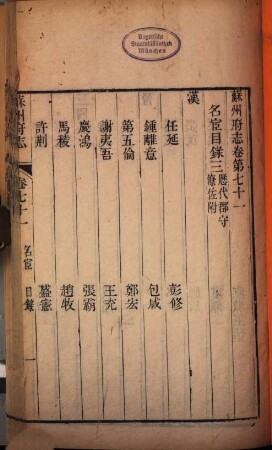 Bayerische
Staatsbibliothek
München
蘇州府志卷第七十一
名宦目錄三 歷代郡守
僚佐附
漢
任延 彭修
鍾離意 包咸
第五倫 鄭宏
謝夷吾 王充
慶鴻 張霸
馬稜 趙牧
許荆 盛憲
蘇州府志 卷七十一 名宦目錄 一